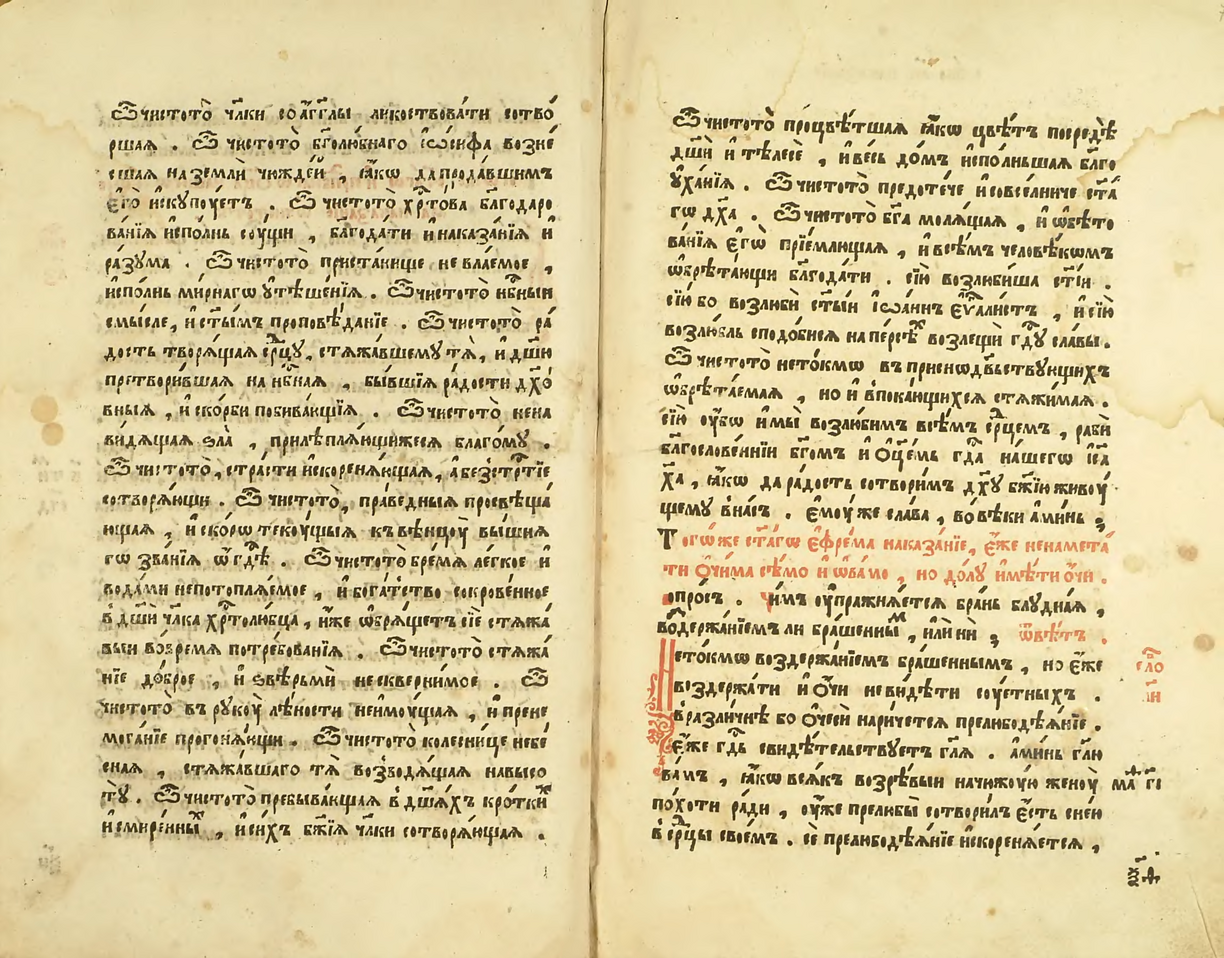 Ѽ чистото̀ чл҃ки со а҆́гг҃лы ликоствова́ти сотво́
ршаѧ . Ѽ чистото̀ бг҃олюбнаго і҆ѡ́сифа возне
сшаѧ на землѝ чюжде́й , ꙗ҆́кѡ да прода́вшимъ
є҆го̀ и҆скупꙋетъ . Ѽ чистото̀ хрⷭ҇то́ва благодаро
ва́нїѧ и҆спо́лнь сꙋщи , бл҃года́ти и҆ наказа́нїѧ и҆
ра́зума . Ѽ чистото̀ приста́нище не влае́мое ,
и҆спо́лнь ми́рнагѡ ᲂу҆тѣше́нїѧ . Ѽ чистото̀ нб҃ный
смы́сле , и҆ ст҃ымъ проповѣ́данїе . Ѽ чистото̀ ра́
дость творѧ́щаѧ срⷣцу , стѧжа́вшему тѧ̀ , и҆ дш҃ю
претвори́вшаѧ на нбⷭ҇наѧ , бы́вшїѧ ра́дости дх҃о́
вныѧ , и҆ ско́рби погиба́ющїѧ . Ѽ чистото̀ нена
ви́дѧщаѧ ѕла̀ , прилѣплѧ́ющижесѧ благо́му .
Ѽ чистото̀ , стра́сти и҆скоренѧ́ющаѧ , а҆ безстрⷭ҇тїе
сотворѧ́ющи . Ѽ чистото̀ , пра́ведныѧ просвѣща́
ющаѧ , и҆ ско́рѡ текꙋщыѧ къ вѣнцꙋ̀ вы́шнѧ
гѡ зва́нїѧ ѿ гдⷭ҇ѣ . Ѽ чистото̀ бре́мѧ ле́гкое и҆
вода́ми непотоплѧ́емое , и҆ бога́тство сокрове́нное
в дш҃и чл҃ка хрⷭ҇толю́бца , и҆́же ѡ҆брѧ́щетъ сїѐ стѧжа́
вый во вре́мѧ потре́бованїѧ . Ѽ чистото̀ стѧжа́
нїе до́брое , и҆ ѕвѣрьмѝ не скверни́мое . Ѽ
чистото̀ въ рукꙋ̀ лѣ́ности неи҆мꙋщаѧ , и҆ прене
мога́нїе прогонѧ́ющи . Ѽ чистото̀ колесни́це небе́
снаѧ , стѧжа́вшаго тѧ̀ возводѧ́щаѧ на высо
тꙋ̀ . Ѽ чистото̀ пребыва́ющаѧ в дш҃а́хъ кро́ткихⷯ
и҆ смире́нныⷯ , и҆ си́хъ бж҃їѧ чл҃ки сотворѧ́ющаѧ .
Ѽ чистото̀ процвѣ́тшаѧ ꙗ҆́кѡ цвѣ́тъ посредѣ̀
дш҃и и҆ тѣ́лесѐ , и҆ ве́сь до́мъ и҆спо́лньшаѧ бл҃го
ᲂу҆ха́нїѧ . Ѽ чистото̀ предоте́че и҆ совсе́лниче ст҃а́
гѡ дх҃а . Ѽ чистото̀ бг҃а молѧ́щаѧ , и҆ ѡ҆бѣто
ва́нїѧ є҆гѡ̀ прїе́млющаѧ , и҆ всѣ́мъ человѣ́кѡмъ
ѡ҆брѣта́ющи бл҃года́ти . сїю̀ возлюби́ша ст҃і́и .
сїю́ бо возлюбѝ ст҃ый і҆ѡа́ннъ є҆ѵⷢ҇алистъ , и҆ сїю̀
возлю́бль сподо́бисѧ на персѣⷯ возлещѝ гдⷭ҇у сла́вы .
Ѽ чистото̀ нето́кмѡ въ приснѡдвьствующихъ
ѡ҆брѣта́емаѧ , но и҆ в пока́ющихсѧ стѧжи́маѧ .
сїю̀ ᲂу҆́бѡ и҆ мы̀ возлю́бимъ всѣ́мъ срⷣцемъ , рабѝ
бл҃гослове́ннїи бг҃омъ и҆ ѻ҆ц҃е́мь гдⷭ҇а на́шегѡ і҆с҃а
хⷭ҇а , ꙗ҆́кѡ да ра́дость сотвори́мъ дх҃ꙋ бж҃їю живꙋ́
щему в на́съ . є҆мꙋ́же сла́ва , во вѣ́ки а҆ми́нь ;
Тогѡ́же ст҃а́гѡ є҆фре́ма наказа́нїе , є҆́же ненамета́
ти ѻ҆чи́ма сѣ́мо и҆ ѡ҆ва́мо , но до́лу и҆мѣ́ти ѻ҆́чи .
опро́съ . Чи́мъ ᲂу҆пражнѧ́етсѧ бра́нь блу́днаѧ ,
воⷥдержа́нїемъ ли бра́шенныⷨ , и҆лѝ нѝ ; ѿвѣ́тъ .
Нето́кмѡ воздержа́нїемъ бра́шеннымъ , но є҆́же
воздержа́ти и҆ ѻ҆́чи невидѣти сꙋетныхъ .
в разли́чнѣ бо ѻ҆чесѝ нарече́тсѧ прелюбодѣѧ́нїе .
є҆́же гдⷭ҇ь свидѣ́тельствуетъ гл҃ѧ . а҆ми́нь гл҃ю
ва́мъ , ꙗ҆́кѡ всѧ́къ возрѣ́вый на чюжꙋ́ю женꙋ̀
по́хоти ра́ди , ᲂу҆жѐ прелюбы̀ сотвори́лъ є҆́сть с нею
в срⷣцы свое́мъ . сѐ прелюбодѣѧ́нїе и҆скоренѧ́етсѧ ,
сло́
н҃і
маⷴ҇ г҃і